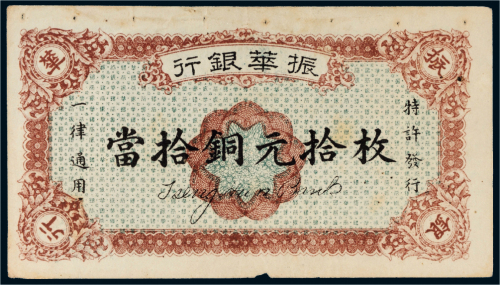 振華銀行
振
華
特許發行
一律通用
當拾銅元拾枚
銀
行